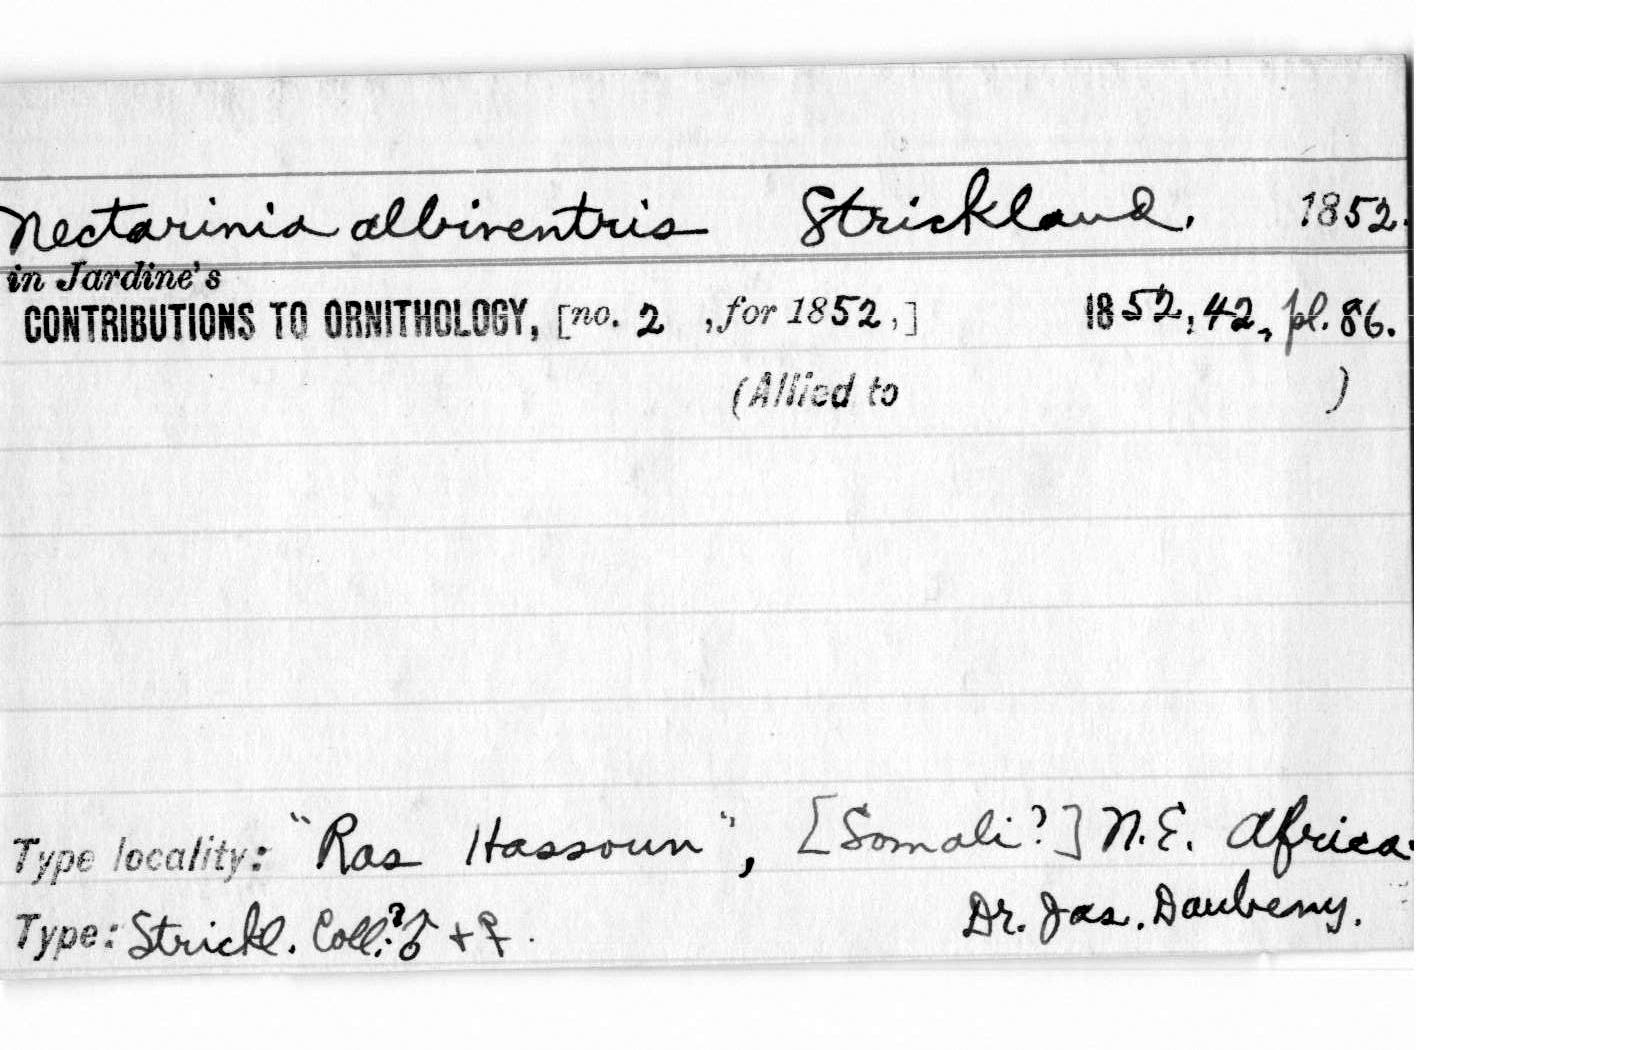 Nectarinia albiventris Strickland. 1852.
in Jardine's
CONTRIBUTIONS TO ORNITHOLOGY, [no. 2 , for 1852,] 1852, 42, pl. 86.
(Allied to )
Type locality: "Ras Hassoun", [Somali?] N.E. Africa.
Type: Strickl. Coll.? ♂ + ♀. Dr. Jas. Daubeny.